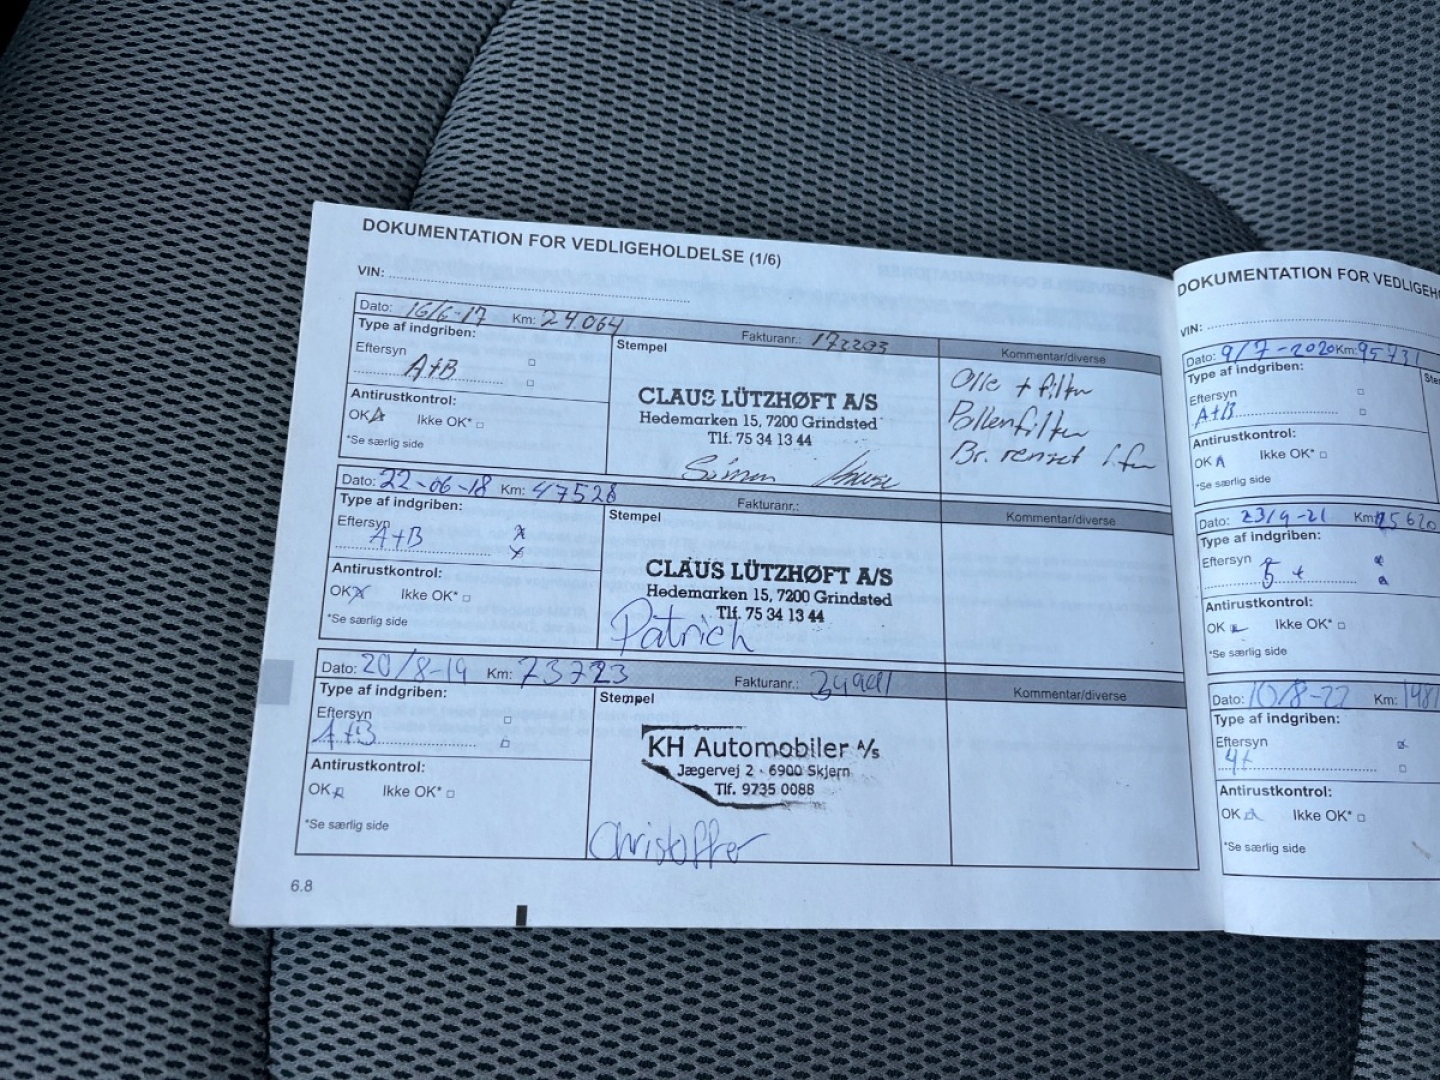 DOKUMENTATION FOR VEDLIGEHOLDELSE (1/6)
VIN:
Dato: 16/6-17 Km: 24.064 Fakturanr.: 172203
Type af indgriben:
Eftersyn
A+B
Antirustkontrol:
OK Ikke OK*
*Se særlig side
Stempel
CLAUS LÜTZHØFT A/S
Hedemarken 15, 7200 Grindsted
Tlf. 75 34 13 44
Kommentar/diverse
Olie + filter
Pollenfilter
Br. renset
Dato: 22-06-18 Km: 47528 Fakturanr.:
Type af indgriben:
Eftersyn
A+B
Antirustkontrol:
OK Ikke OK*
*Se særlig side
Stempel
CLAUS LÜTZHØFT A/S
Hedemarken 15, 7200 Grindsted
Tlf. 75 34 13 44
Patrich
Kommentar/diverse
Dato: 20/8-19 Km: 73723 Fakturanr.:
Type af indgriben:
Eftersyn
A+B
Antirustkontrol:
OK Ikke OK*
*Se særlig side
Stempel
KH Automobiler A/S
Jægervej 2 - 6900 Skjern
Tlf. 9735 0088
Christoffer
Kommentar/diverse
6.8
DOKUMENTATION FOR
VIN:
Dato: 9/7-2020 Km: 95731
Type af indgriben:
Eftersyn
A+B
Antirustkontrol:
OK Ikke OK*
*Se særlig side
Dato: 23/9-21 Km:
Type af indgriben:
Eftersyn
5 +
Antirustkontrol:
OK Ikke OK*
*Se særlig side
Dato: 10/8-22 Km:
Type af indgriben:
Eftersyn
4+
Antirustkontrol:
OK Ikke OK*
*Se særlig side